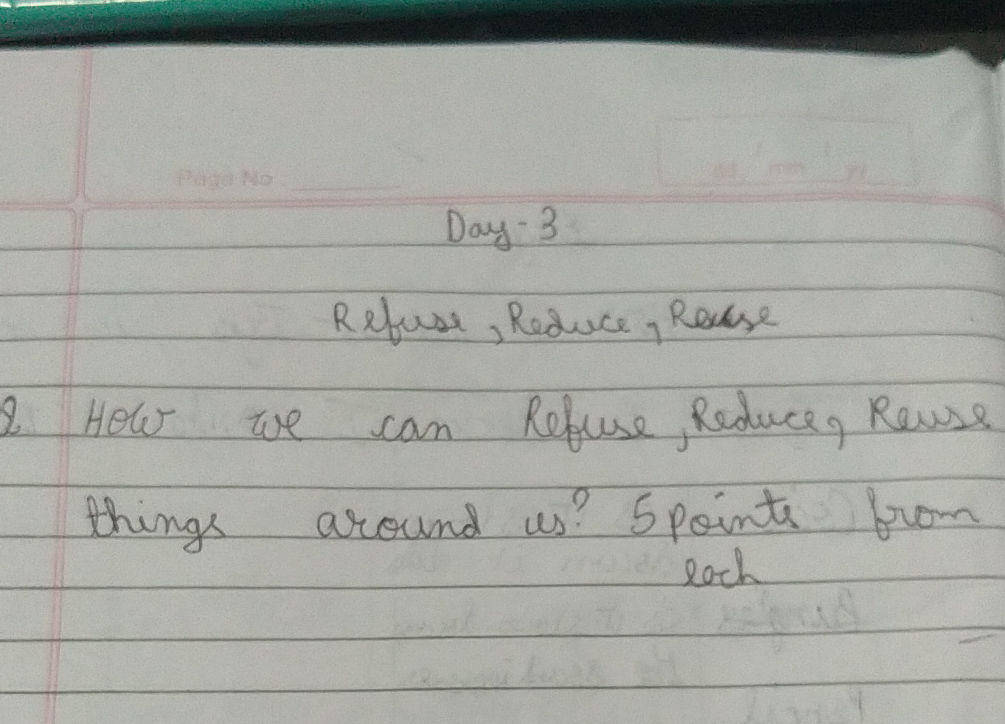 Page No
Day - 3
Refuse, Reduce, Reuse
Q How we can Refuse, Reduce, Reuse
things around us? 5 points from
each